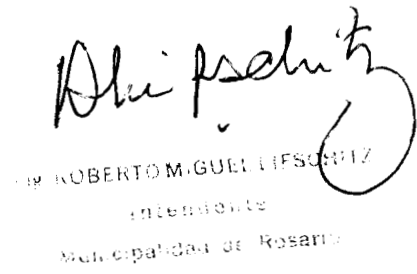 Lifschitz
Ing. ROBERTO MIGUEL LIFSCHITZ
Intendente
Municipalidad de Rosario